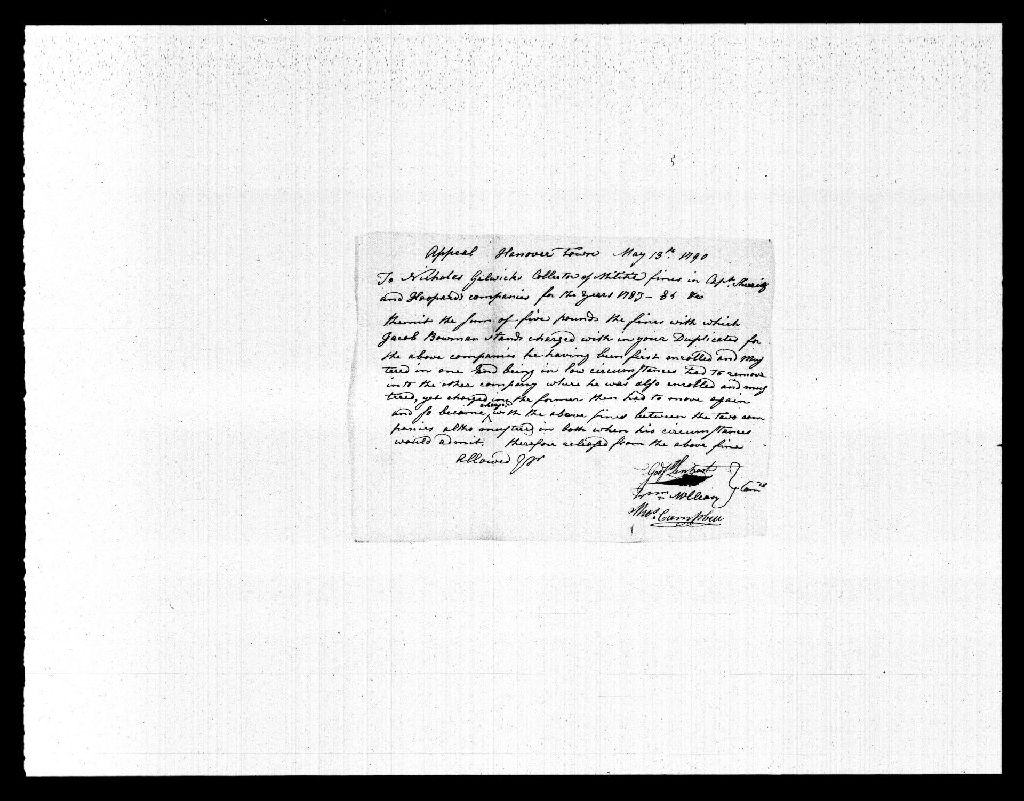 Appeal Hanover Town May 13th 1790
To Nicholas Gelwicks Collector of Militia fines in Capt.
and companies for the years 1783 - 
the Sum of five pounds the fines with which
Jacob Bowman Stands charged with in your Duplicates for
the above companies he having been first enrolled and Mus
tered in one and being in low circumstances had to remove
into the other company where he was also enrolled and mus
tered, yet charged in the former then had to move again
and so became charged with the above fines between the two com
panies altho mustered in both when his circumstances
would admit. therefore released from the above fine
Allowed
Wm McCleary
Thos. Campbell